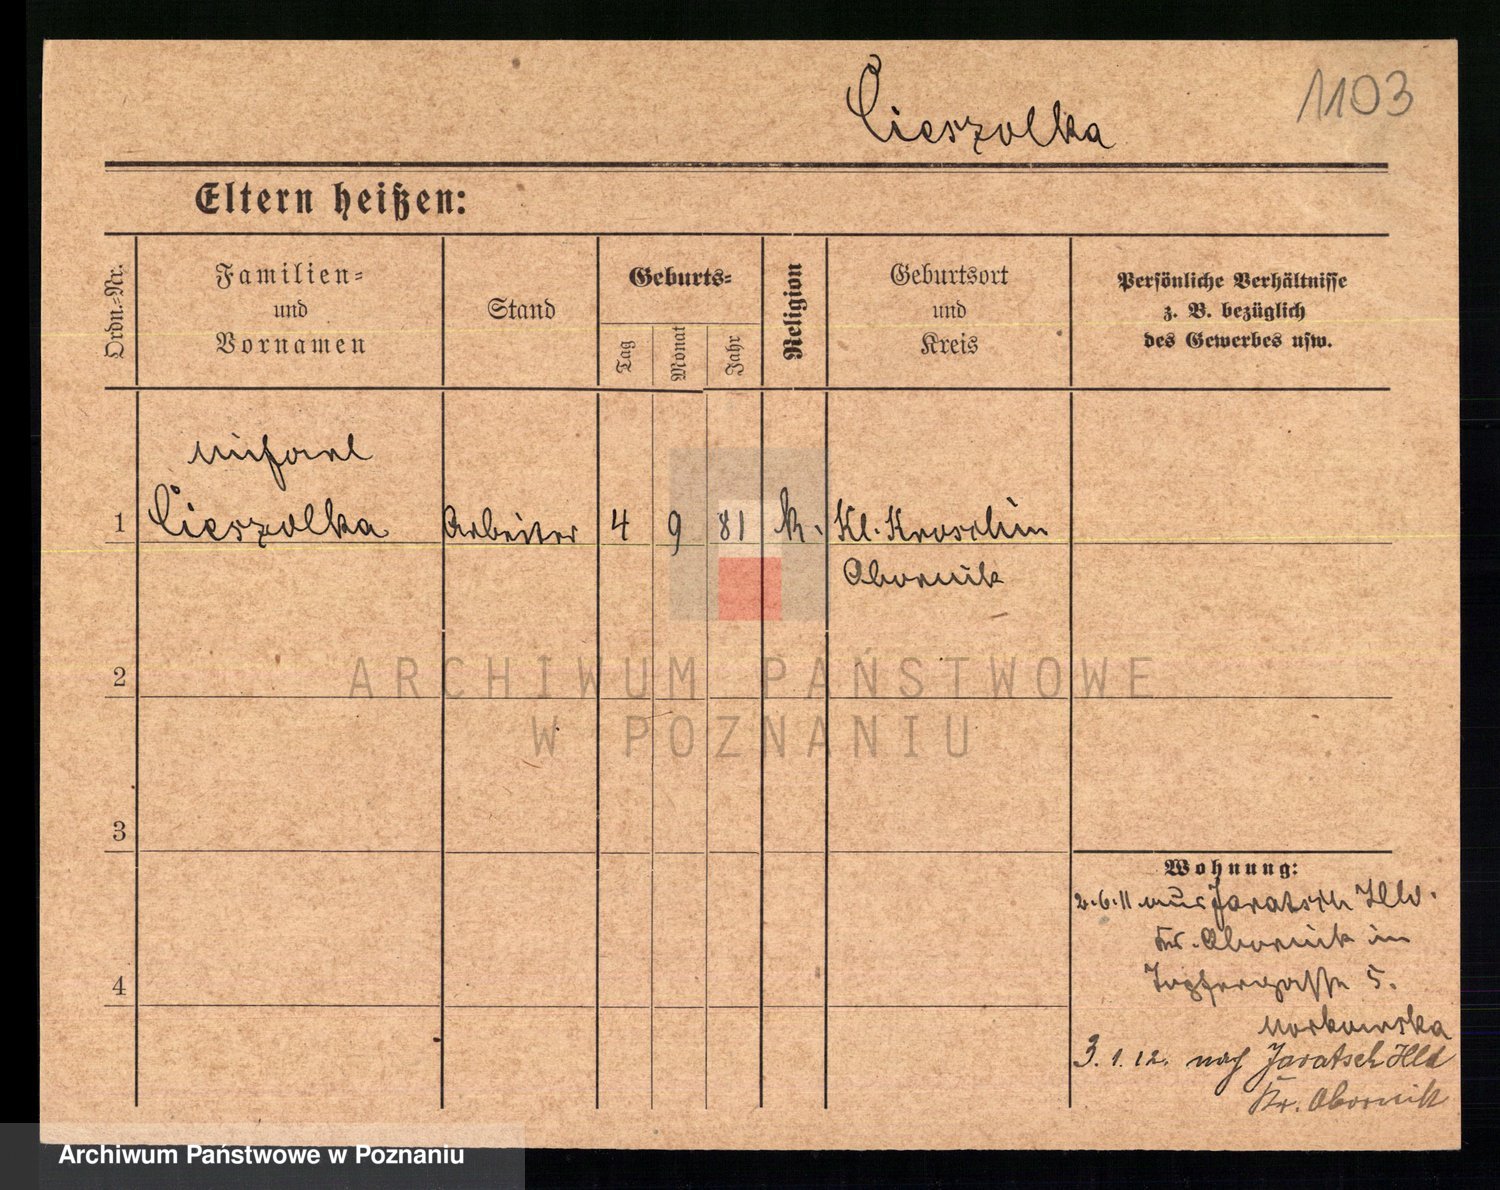 1103
Cieszolka
Eltern heißen:
Ordn.-Nr.
Familien-
und
Vornamen
Stand
Geburts-
Tag
Monat
Jahr
Religion
Geburtsort
und
Kreis
Persönliche Verhältnisse
z. B. bezüglich
des Gewerbes usw.
Michael
1 Cieszolka Arbeiter 4 9 81 k. Kl. Kroschin
Obornik
2
3
4
Wohnung:
2.6.11 aus Jaratsch Hld.
Kr. Obornik in
Töpfergasse 5.
3.1.12. nach Jaratsch Hld
Kr. Obornik
ARCHIWUM PAŃSTWOWE
W POZNANIU
Archiwum Państwowe w Poznaniu